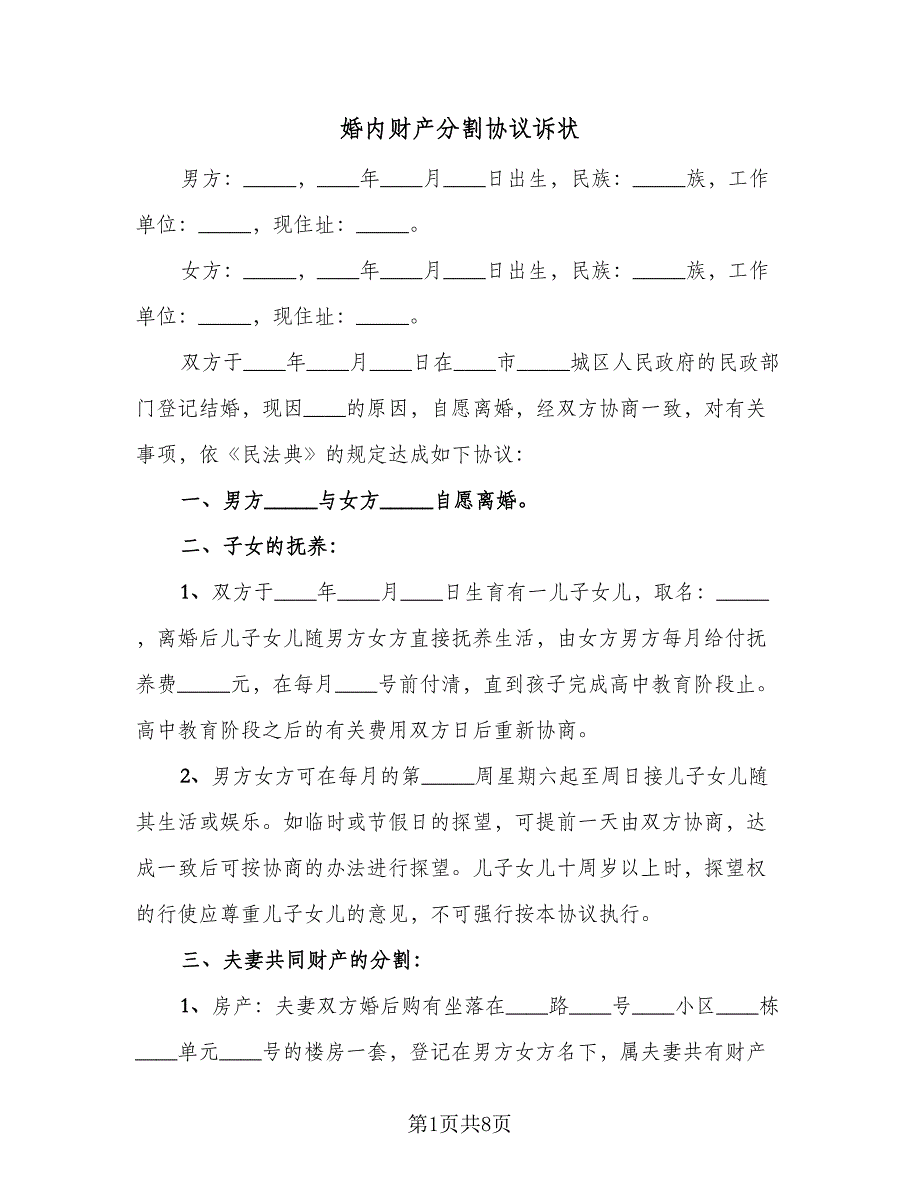 婚内财产分割协议诉状
男方：_____，____年____月____日出生，民族：_____族，工作
单位：_____，现住址：_____。
女方：_____，____年____月____日出生，民族：_____族，工作
单位：_____，现住址：_____。
双方于____年____月____日在____市_____城区人民政府的民政部
门登记结婚，现因____的原因，自愿离婚，经双方协商一致，对有关
事项，依《民法典》的规定达成如下协议：
一、男方_____与女方_____自愿离婚。
二、子女的抚养：
1、双方于____年____月____日生育有一儿子女儿，取名：_____
，离婚后儿子女儿随男方女方直接抚养生活，由女方男方每月给付抚
养费_____元，在每月____号前付清，直到孩子完成高中教育阶段止。
高中教育阶段之后的有关费用双方日后重新协商。
2、男方女方可在每月的第_____周星期六起至周日接儿子女儿随
其生活或娱乐。如临时或节假日的探望，可提前一天由双方协商，达
成一致后可按协商的办法进行探望。儿子女儿十周岁以上时，探望权
的行使应尊重儿子女儿的意见，不可强行按本协议执行。
三、夫妻共同财产的分割：
1、房产：夫妻双方婚后购有坐落在____路____号____小区____栋
____单元____号的楼房一套，登记在男方女方名下，属夫妻共有财产
第1页共8页